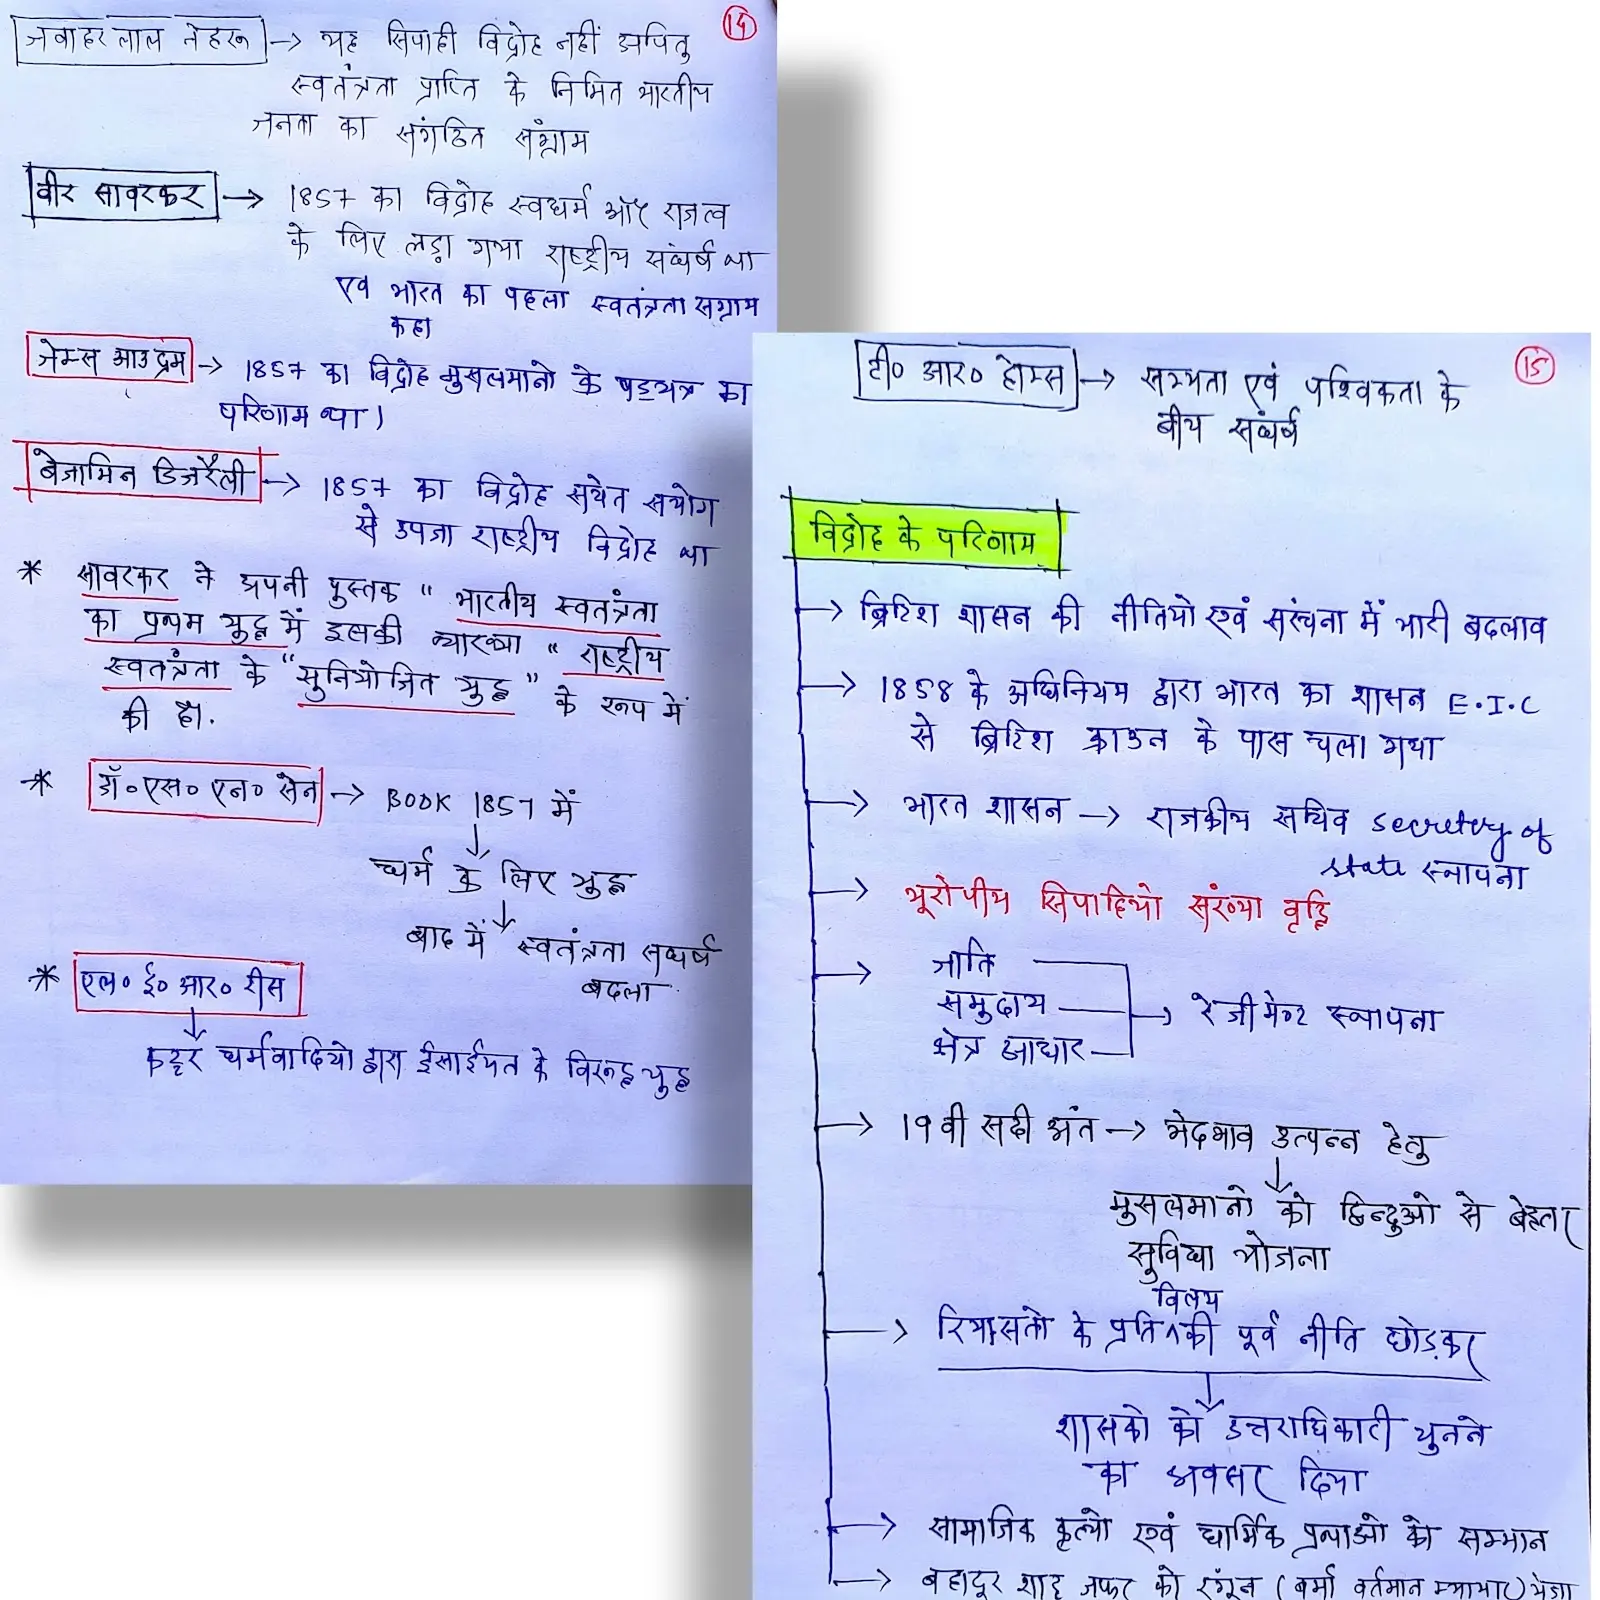 14
जवाहर लाल नेहरू → यह सिपाही विद्रोह नहीं अपितु
स्वतंत्रता प्राप्ति के निमित भारतीय
जनता का संगठित संग्राम
वीर सावरकर → 1857 का विद्रोह स्वधर्म और राजत्व
के लिए लड़ा गया राष्ट्रीय संघर्ष था
एव भारत का पहला स्वतंत्रता सग्राम
कहा
जेम्स आउट्रम → 1857 का विद्रोह मुसलमानो के षडयत्र का
परिणाम था।
बेजामिन डिजरैली → 1857 का विद्रोह सचेत सयोग
से उपजा राष्ट्रीय विद्रोह था
* सावरकर ने अपनी पुस्तक " भारतीय स्वतंत्रता
का प्रथम युद्ध में इसकी व्याख्या " राष्ट्रीय
स्वतंत्रता के "सुनियोजित युद्ध" के रूप में
की है।.
* डॉ॰ एस॰ एन॰ सेन → BOOK 1857 में
↓
धर्म के लिए युद्ध
↓
बाद में स्वतंत्रता सघर्ष
बदला
* एल॰ ई॰ आर॰ रीस
↓
कट्टर धर्मवादियो द्वारा ईसाईयत के विरूद्ध युद्ध
15
टी॰ आर॰ होम्स → सभ्यता एवं पश्विकता के
बीच संघर्ष
विद्रोह के परिणाम
→ ब्रिटिश शासन की नीतियो एवं संरचना में भारी बदलाव
→ 1858 के अधिनियम द्वारा भारत का शासन E.I.C
से ब्रिटिश क्राउन के पास चला गया
→ भारत शासन → राजकीय सचिव secretry of
state स्थापना
→ यूरोपीय सिपाहियो संख्या वृद्धि
→ जाति
समुदाय → रेजीमेण्ट स्थापना
क्षेत्र आधार
→ 19 वी सदी अंत → भेदभाव उत्पन्न हेतु
↓
मुसलमानो को हिन्दुओ से बेहतर
सुविधा योजना
विलय
→ रियासतो के प्रति ^ की पूर्व नीति छोड़कर
↓
शासको को उत्तराधिकारी चुनने
का अवसर दिया
→ सामाजिक कृत्यो एवं धार्मिक प्रथाओ को सम्मान
→ बहादूर शाह जफर को रंगून (बर्मा वर्तमान म्यामार) भेजा